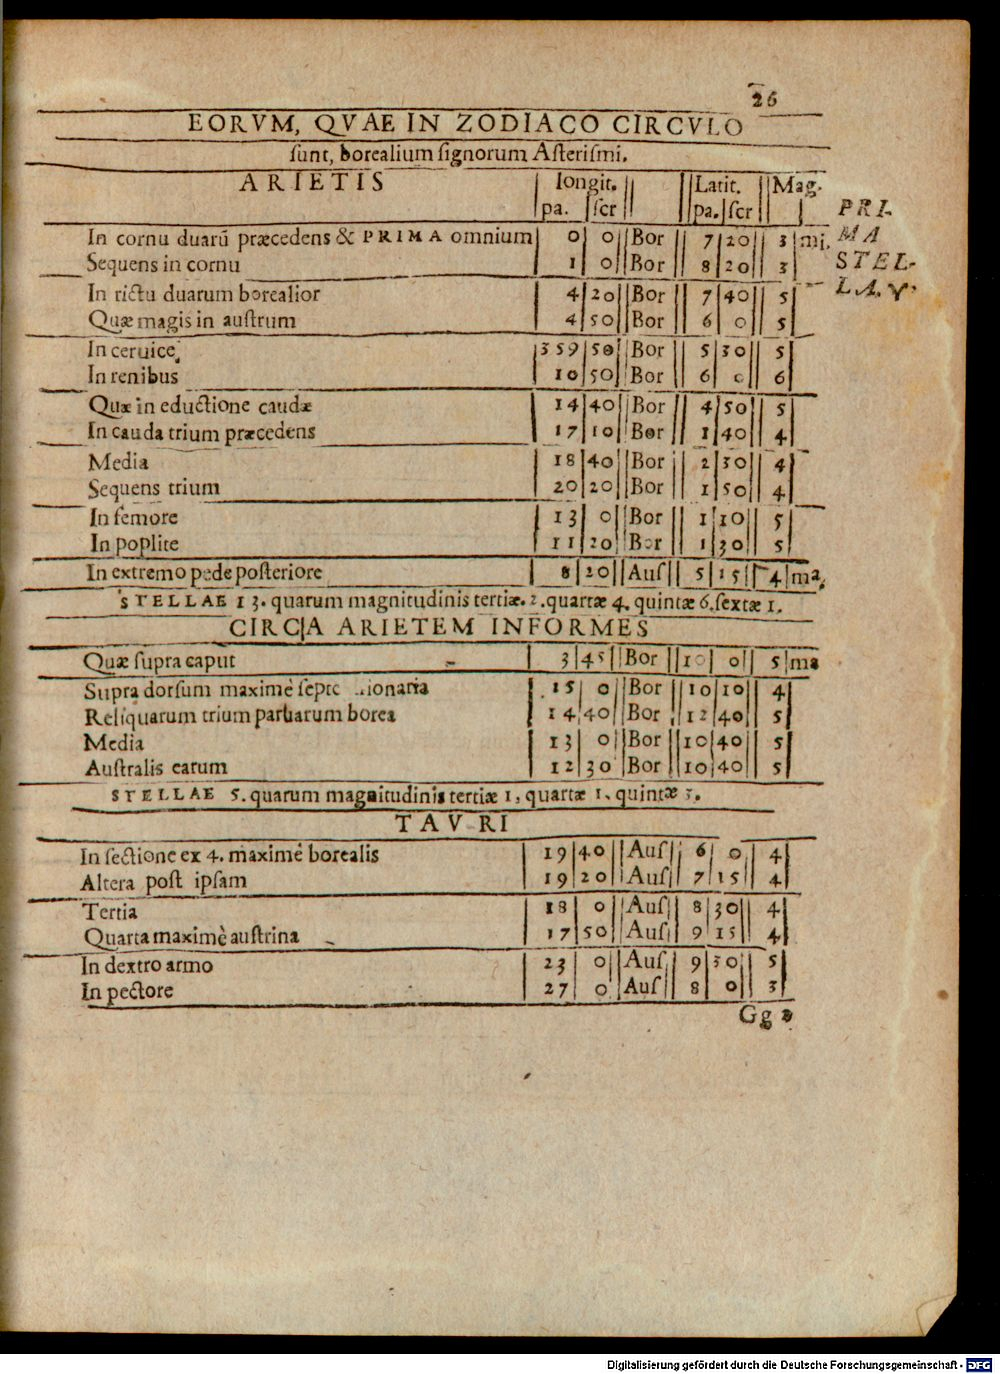 26
EORVM, QVAE IN ZODIACO CIRCVLO
ſunt, borealium ſignorum Aſteriſmi.
ARIETIS longit. Latit. Mag.
pa. ſcr pa. ſcr
In cornu duarū præcedens & PRIMA omnium 0 0 Bor 7 20 3 mi.
Sequens in cornu 1 0 Bor 8 20 3
PRI-
MA
STEL-
LA. V.
In rictu duarum borealior 4 20 Bor 7 40 5
Quæ magis in auſtrum 4 50 Bor 6 0 5
In ceruice 359 50 Bor 5 30 5
In renibus 10 50 Bor 6 0 6
Quæ in eductione caudæ 14 40 Bor 4 50 5
In cauda trium præcedens 17 10 Bor 1 40 4
Media 18 40 Bor 2 30 4
Sequens trium 20 20 Bor 1 50 4
In femore 13 0 Bor 1 10 5
In poplite 11 20 Bor 1 30 5
In extremo pede poſteriore 8 20 Auſ 5 15 4 ma.
STELLAE 13. quarum magnitudinis tertiæ. 2. quartæ 4. quintæ 6. ſextæ 1.
CIRCA ARIETEM INFORMES
Quæ ſupra caput 3 45 Bor 10 0 5 ma
Supra dorſum maximè 15 0 Bor 10 10 4
Reliquarum trium paruarum borea 14 40 Bor 12 40 5
Media 13 0 Bor 10 40 5
Auſtralis earum 12 30 Bor 10 40 5
STELLAE 5. quarum magnitudinis tertiæ 1, quartæ 1. quintæ 3.
TAVRI
In ſectione ex 4. maximè borealis 19 40 Auſ 6 0 4
Altera poſt ipſam 19 20 Auſ 7 15 4
Tertia 18 0 Auſ 8 30 4
Quarta maximè auſtrina 17 50 Auſ 9 15 4
In dextro armo 23 0 Auſ 9 30 5
In pectore 27 0 Auſ 8 0 3
Gg 2
Digitalisierung gefördert durch die Deutsche Forschungsgemeinschaft - DFG